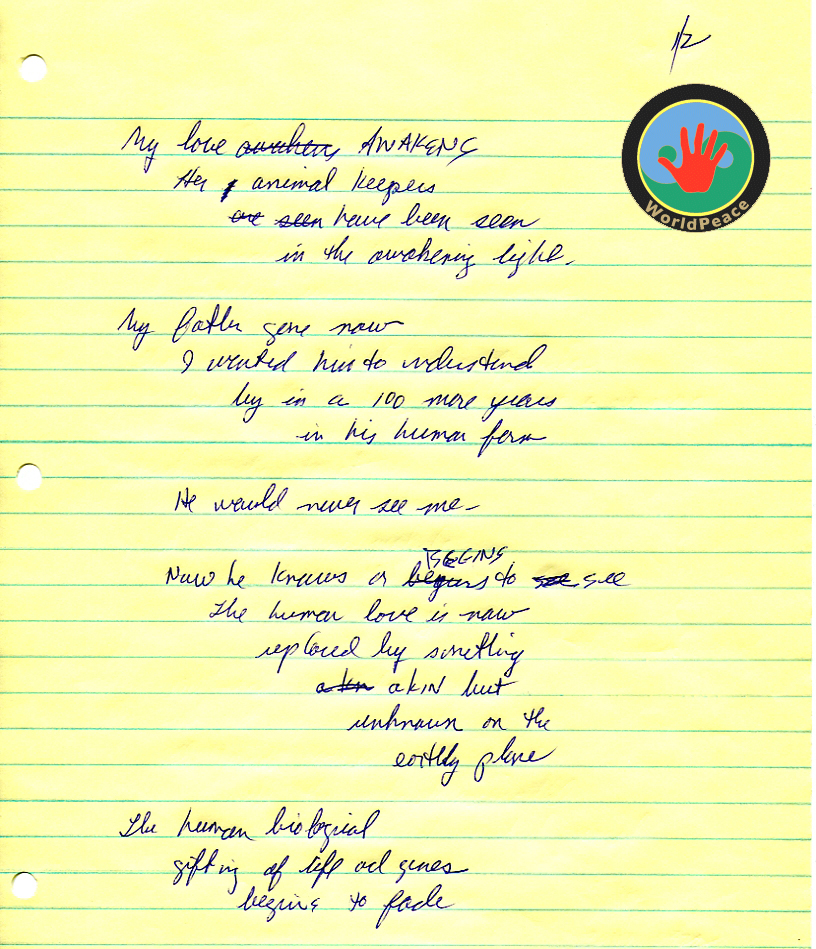 1/2
WorldPeace
My love awakens AWAKENS
Her animal keepers
are seen have been seen
in the awakening light.
My father gone now
I wanted him to understand
but in a 100 more years
in his human form
He would never see me-
BEGINS
Now he knows or begins to see see
The human love is now
replaced by something
akin akIN but
unknown on the
earthly plane
The human biological
gifting of life and genes
begins to fade